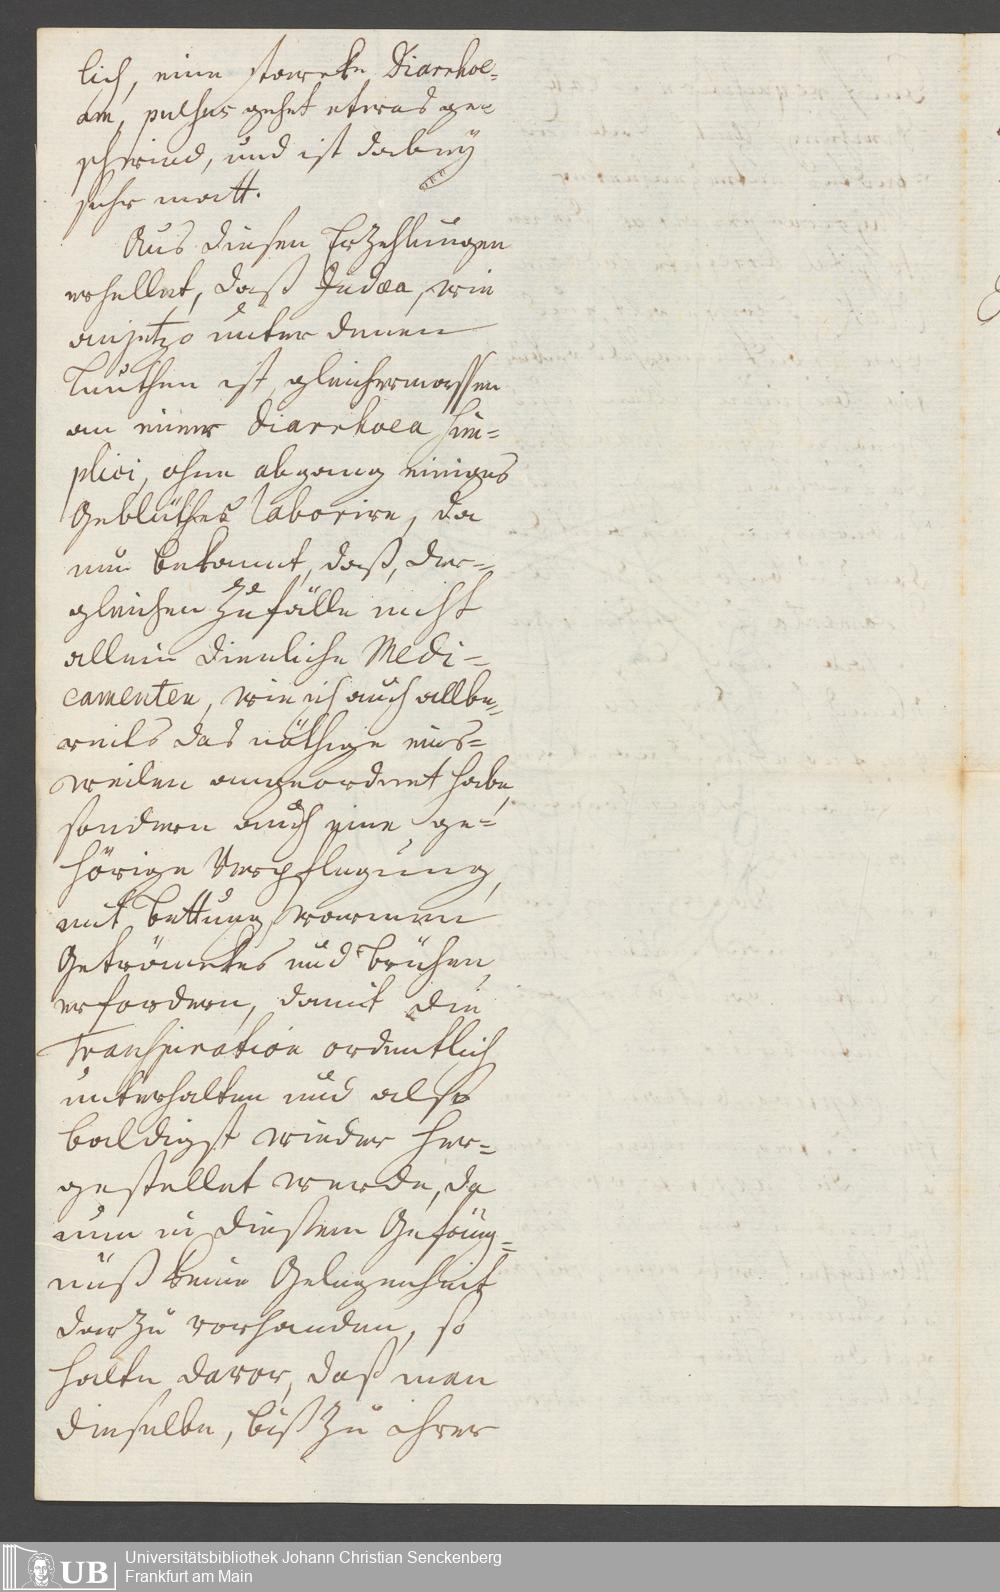 lich, eine starcke Diarrhoe-
am, pulsus gehet etwas ge-
schwind, und ist dabey
sehr matt.
Aus diesen Erzehlungen
erhellet, daß Judæa, wie
anjetzo unter denen
Leuthen ist, gleichermassen
an einer Diarrhoea sim-
plici, ohne abgang einiges
Geblüthes laborire, da
nun bekannt, daß, der-
gleichen Zufälle nicht
allein dienliche Medi-
camenten, wie ich auch allbe-
reits das nöthige eins-
weilen angeordnet habe,
sondern auch eine ge-
hörige Verpflegung,
mit Bettung, warmen
Geträncks und Brühen
erfordern, damit die
Transpiration ordentlich
unterhalten und also
baldigst wieder her-
gestellet werde, da
nun in diesem Gefäng-
nüß keine Gelegenheit
darzu vorhanden, so
halte davor, daß man
dieselbe, biß zu ihrer
UB Universitätsbibliothek Johann Christian Senckenberg
Frankfurt am Main